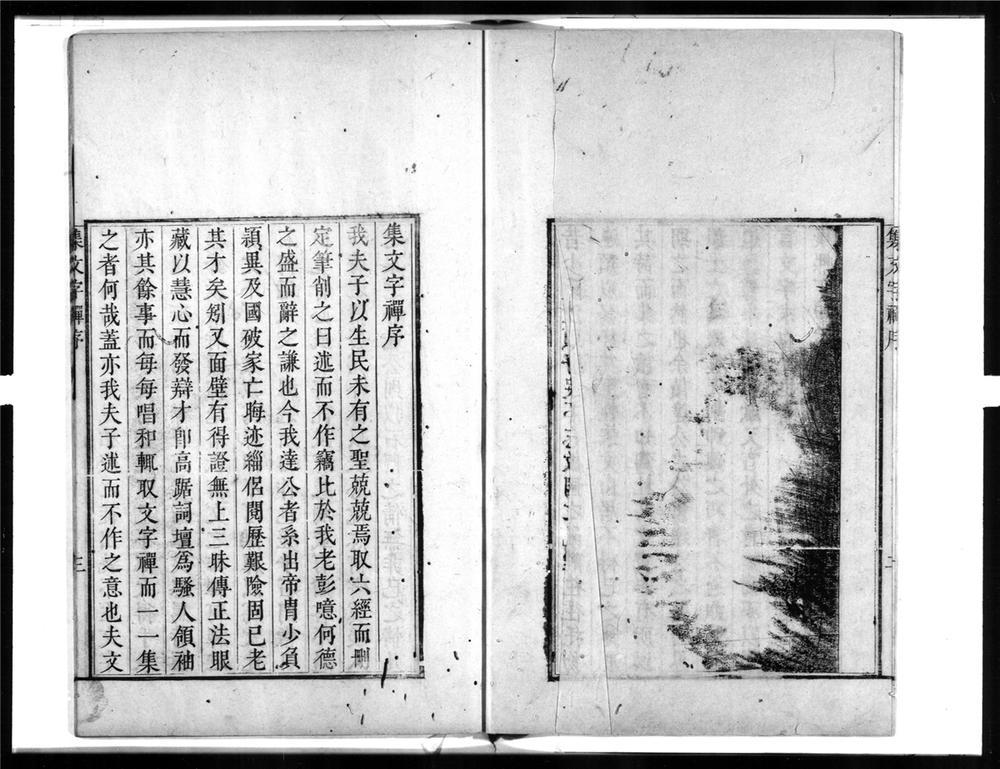 集文字禪序
集文字禪序
我夫子以生民未有之聖兢兢焉取六經而刪
定筆削之曰述而不作竊比於我老彭噫何德
之盛而辭之謙也今我達公者系出帝胄少負
穎異及國破家亡晦迹緇侶閱歷艱險固已老
其才矣矧又面壁有得證無上三昧傳正法眼
藏以慧心而發辯才卽高踞詞壇爲騷人領袖
亦其餘事而每每唱和輒取文字禪而一一集
之者何哉蓋亦我夫子述而不作之意也夫文
集文字禪序
三